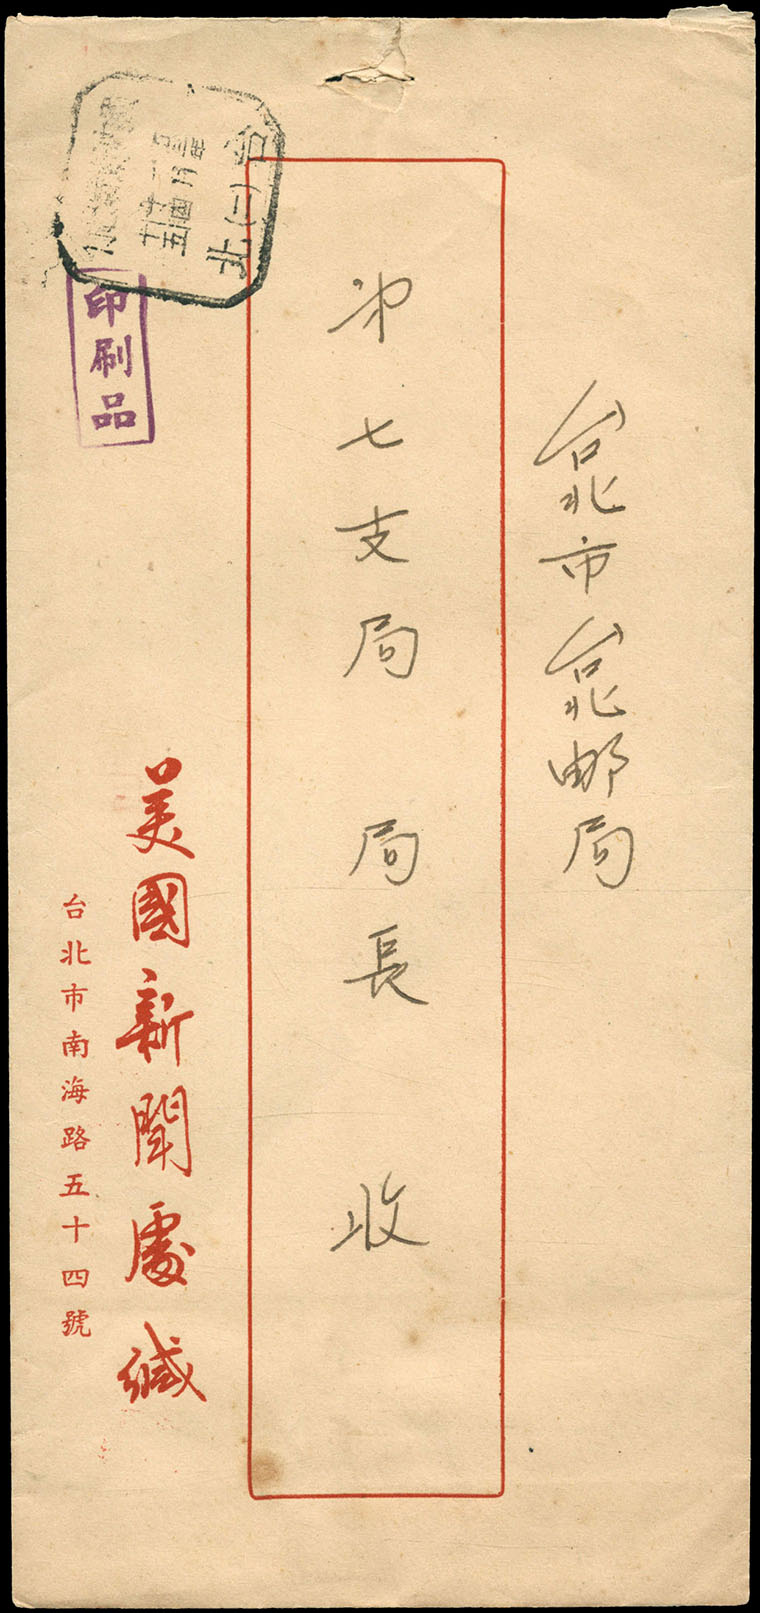 台北市台北邮局
第七支局 局長 收
美國新聞處緘
台北市南海路五十四號
印刷品
台
北(一)